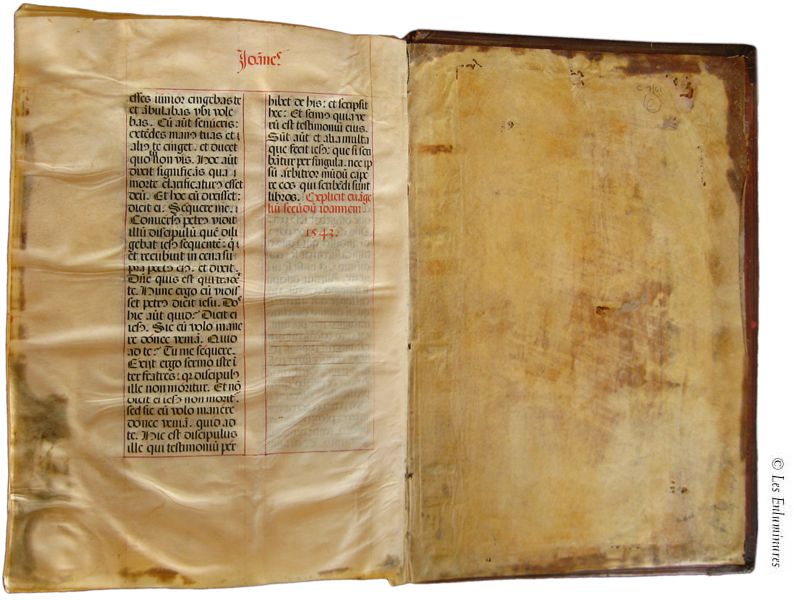 Joāneꝭ
esses iunior cingebas te
et ābulabas vbi vole
bas. Cū aūt senueris:
extēdes manꝰ tuas et a
liꝰ te cinget. et ducet
quo non vis. Hoc aūt
dixit significās qua
morte clarificaturꝰ esset
deū. Et hoc cū dixisset:
dicit ei. Sequere me.
Conuersꝰ petrꝰ vidit
illū discipulū quē dili
gebat iesꝰ sequentē: q̇
et recubuit in cena su
pra pectꝰ eiꝰ. et dixit.
Dn̄e quis est qui tradet
te. Hunc ergo cū vidis
set petrꝰ dicit iesu. Dn̄e
hic aūt quid? Dicit ei
iesꝰ. Sic eū volo mane
re donec veniā. Quid
ad te? Tu me sequere.
Exijt ergo sermo iste ī
ter fratres: qꝛ discipulꝰ
ille non moritur. Et nō
dixit ei iesꝰ non morit.
sed sic eū volo manere
donec veniā. quid ad
te. Hic est discipulus
ille qui testimoniū per
hibet de his: et scripsit
hec: Et scimꝰ quia ve
rū est testimoniū eius.
Sūt aūt et alia multa
que fecit iesꝰ: que si scri
bātur per singula. nec ip
sū arbitror mūdū cape
re eos qui scribēdi sunt
libros. Explicit euāge
liū secūdū ioannem.
1543.
© Les Enluminures